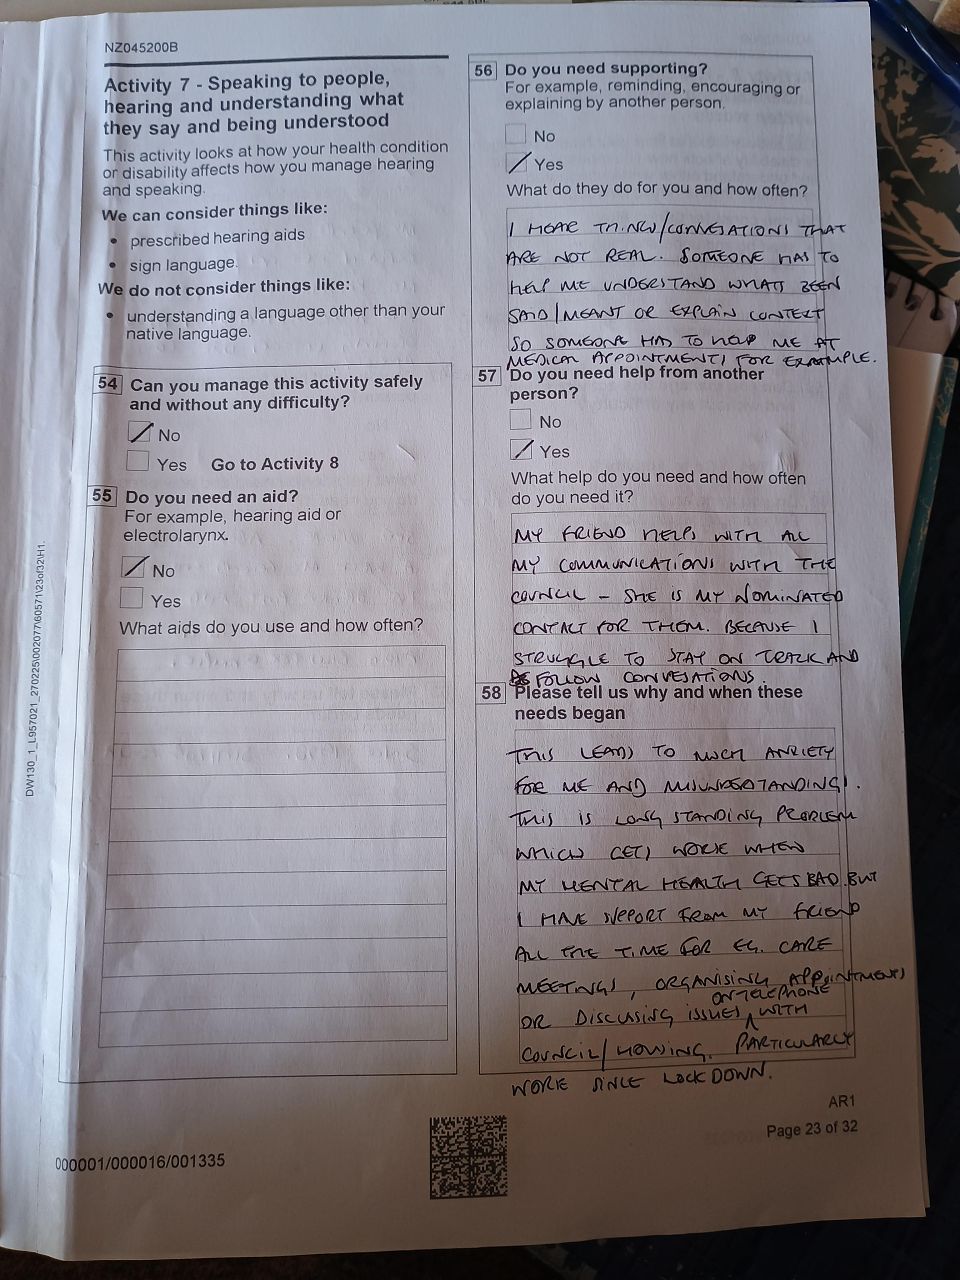 NZ045200B
Activity 7 - Speaking to people,
hearing and understanding what
they say and being understood
This activity looks at how your health condition
or disability affects how you manage hearing
and speaking.
We can consider things like:
• prescribed hearing aids
• sign language.
We do not consider things like:
• understanding a language other than your
native language.
54 Can you manage this activity safely
and without any difficulty?
No
Yes Go to Activity 8
55 Do you need an aid?
For example, hearing aid or
electrolarynx.
No
Yes
What aids do you use and how often?
56 Do you need supporting?
For example, reminding, encouraging or
explaining by another person.
No
Yes
What do they do for you and how often?
I HEAR THINGS/CONVESATIONS THAT
ARE NOT REAL. SOMEONE HAS TO
HELP ME UNDERSTAND WHATS BEEN
SAID/MEANT OR EXPLAIN CONTEXT
SO SOMEONE HAS TO HELP ME AT
MEDICAL APPOINTMENTS FOR EXAMPLE.
57 Do you need help from another
person?
No
Yes
What help do you need and how often
do you need it?
MY FRIEND HELPS WITH ALL
MY COMMUNICATIONS WITH THE
COUNCIL - SHE IS MY NOMINATED
CONTACT FOR THEM. BECAUSE I
STRUGGLE TO STAY ON TRACK AND
FOLLOW CONVESATIONS.
58 Please tell us why and when these
needs began
THIS LEADS TO MUCH ANXIETY
FOR ME AND MISUNDERSTANDINGS.
THIS IS LONG STANDING PROBLEM
WHICH GETS WORSE WHEN
MY MENTAL HEALTH GETS BAD. BUT
I HAVE SUPPORT FROM MY FRIEND
ALL THE TIME FOR EG. CARE
MEETINGS, ORGANISING APPOINTMENTS
OR DISCUSSING ISSUES ON TELEPHONE WITH
COUNCIL/HOUSING. PARTICULARLY
WORSE SINCE LOCKDOWN.
AR1
Page 23 of 32
000001/000016/001335
DW130_1_L957021_270225\002077\60571\23of32\H1.